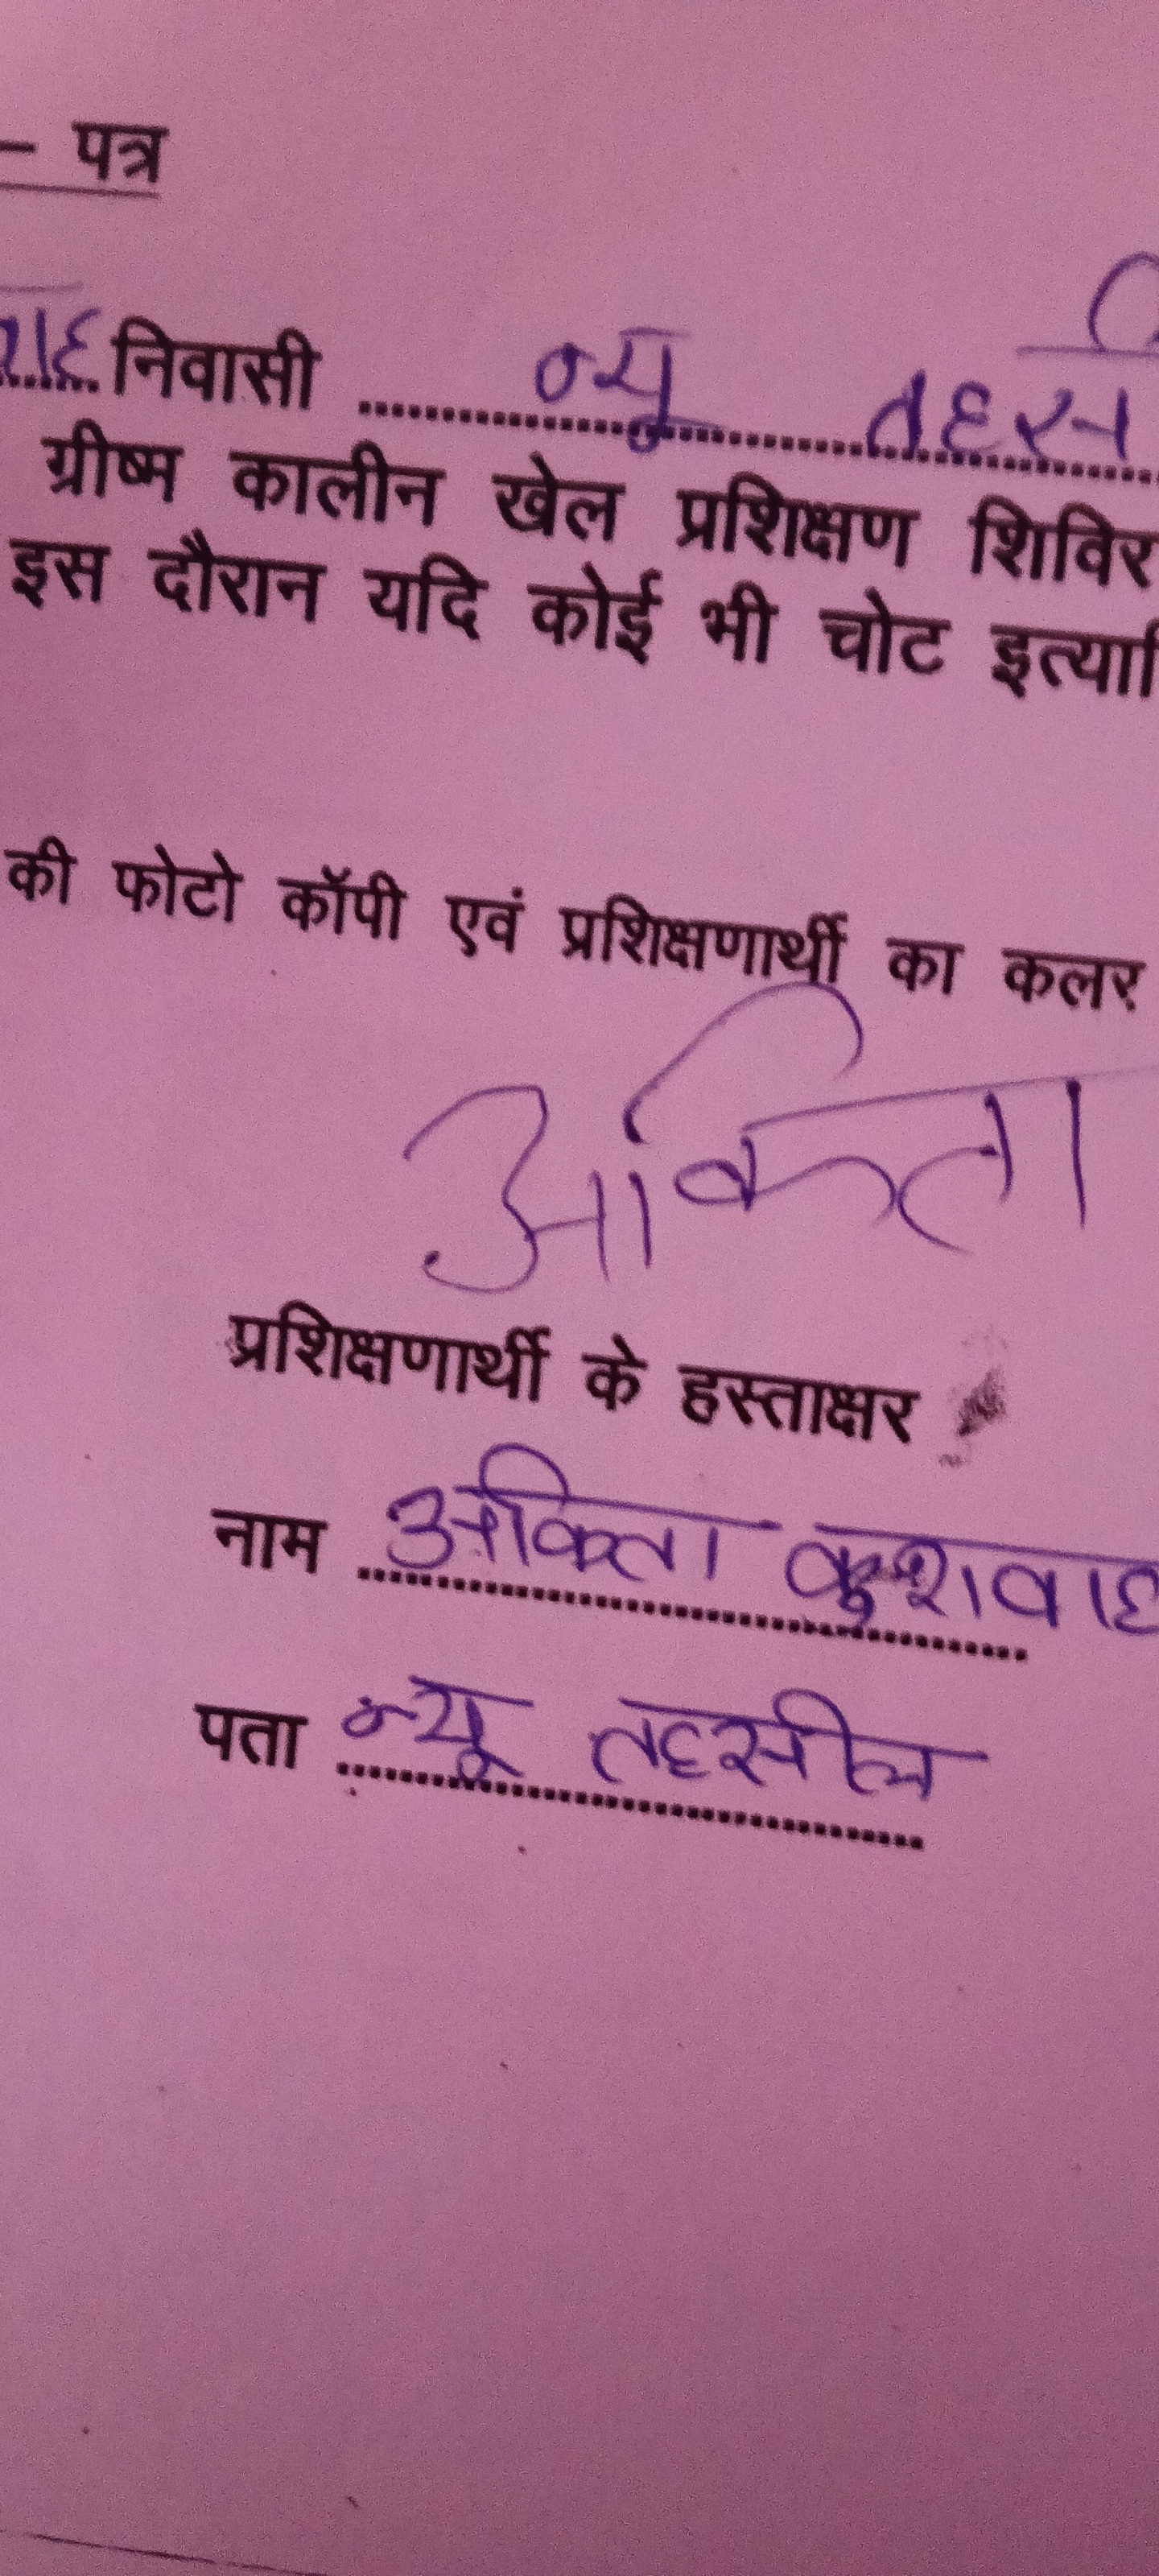 – पत्र
वाह निवासी न्यू तहसी
ग्रीष्म कालीन खेल प्रशिक्षण शिविर
इस दौरान यदि कोई भी चोट इत्यादि
की फोटो कॉपी एवं प्रशिक्षणार्थी का कलर
अकिता
प्रशिक्षणार्थी के हस्ताक्षर
नाम अकिता कुशवाह
पता न्यू तहसील